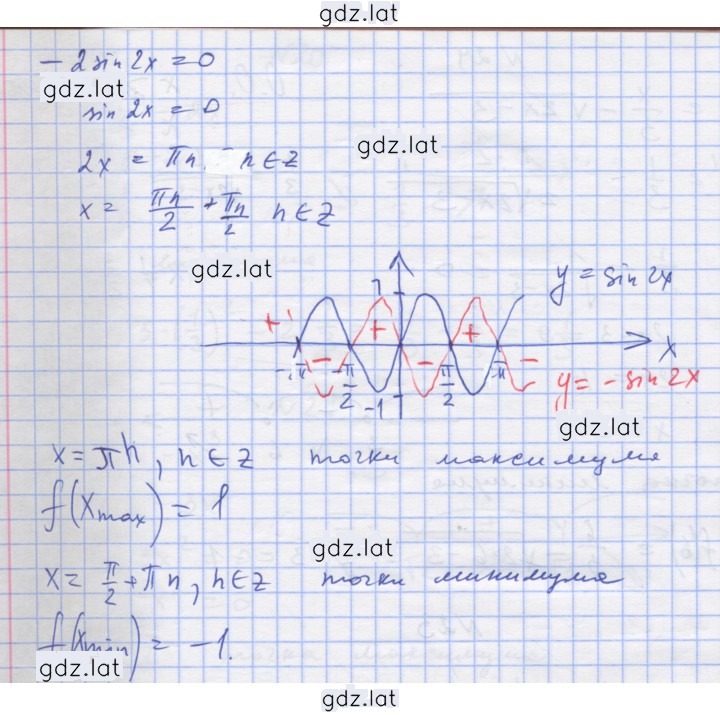 gdz.lat
- 2 sin 2x = 0
gdz.lat
sin 2x = 0
gdz.lat
2x = πn, n ∈ Z
x = πn/2 + πn/2 n ∈ Z
gdz.lat
y = sin 2x
1
+ + +
x
-π -π/2 π/2 π
- - -
-1
y = - sin 2x
gdz.lat
x = πn, n ∈ Z точки максимума
f(x max) = 1
gdz.lat
x = π/2 + πn, n ∈ Z точки минимума
f(x min) = -1.
gdz.lat
gdz.lat